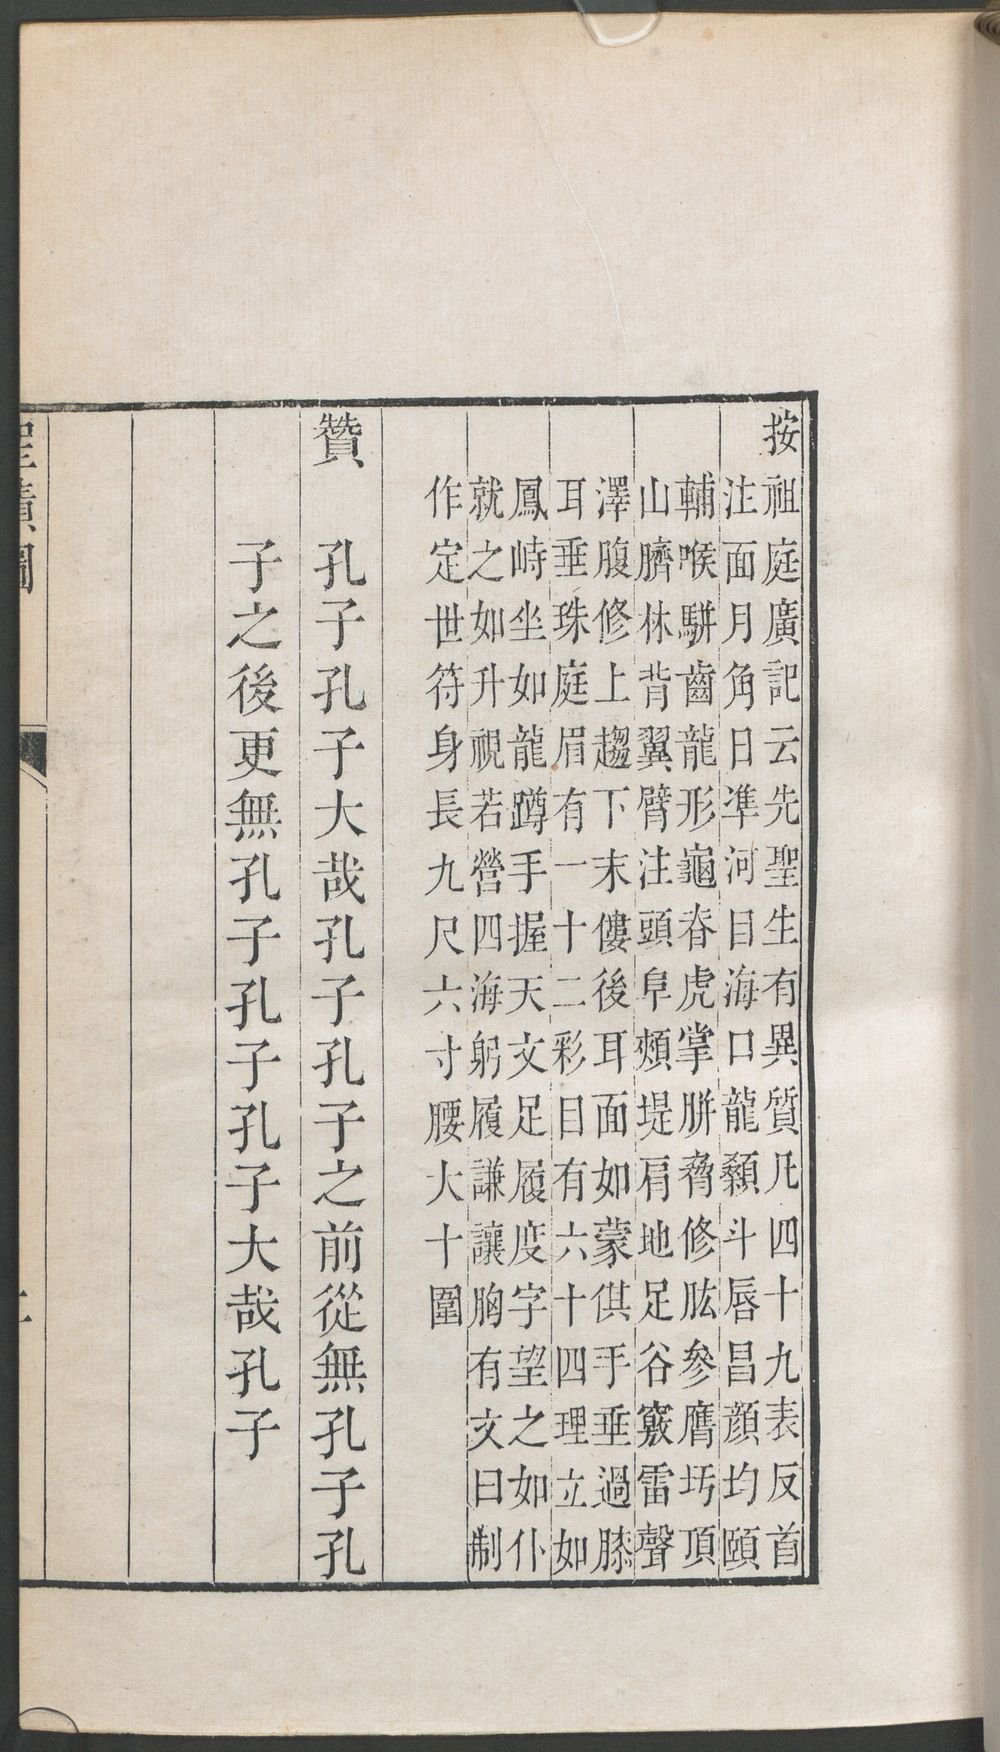 按
祖庭廣記云先聖生有異質凡四十九表反首
注面月角日準河目海口龍顙斗唇昌顔均頤
輔喉駢齒龍形龜脊虎掌胼脅修肱參膺圬頂
山臍林背翼臂注頭阜頰堤肩地足谷竅雷聲
澤腹修上趨下末僂後耳面如蒙倛手垂過膝
耳垂珠庭眉有一十二彩目有六十四理立如
鳳峙坐如龍蹲手握天文足履度字望之如仆
就之如升視若營四海躬履謙讓胸有文曰制
作定世符身長九尺六寸腰大十圍
贊
孔子孔子大哉孔子孔子之前從無孔子孔
子之後更無孔子孔子孔子大哉孔子
聖蹟圖